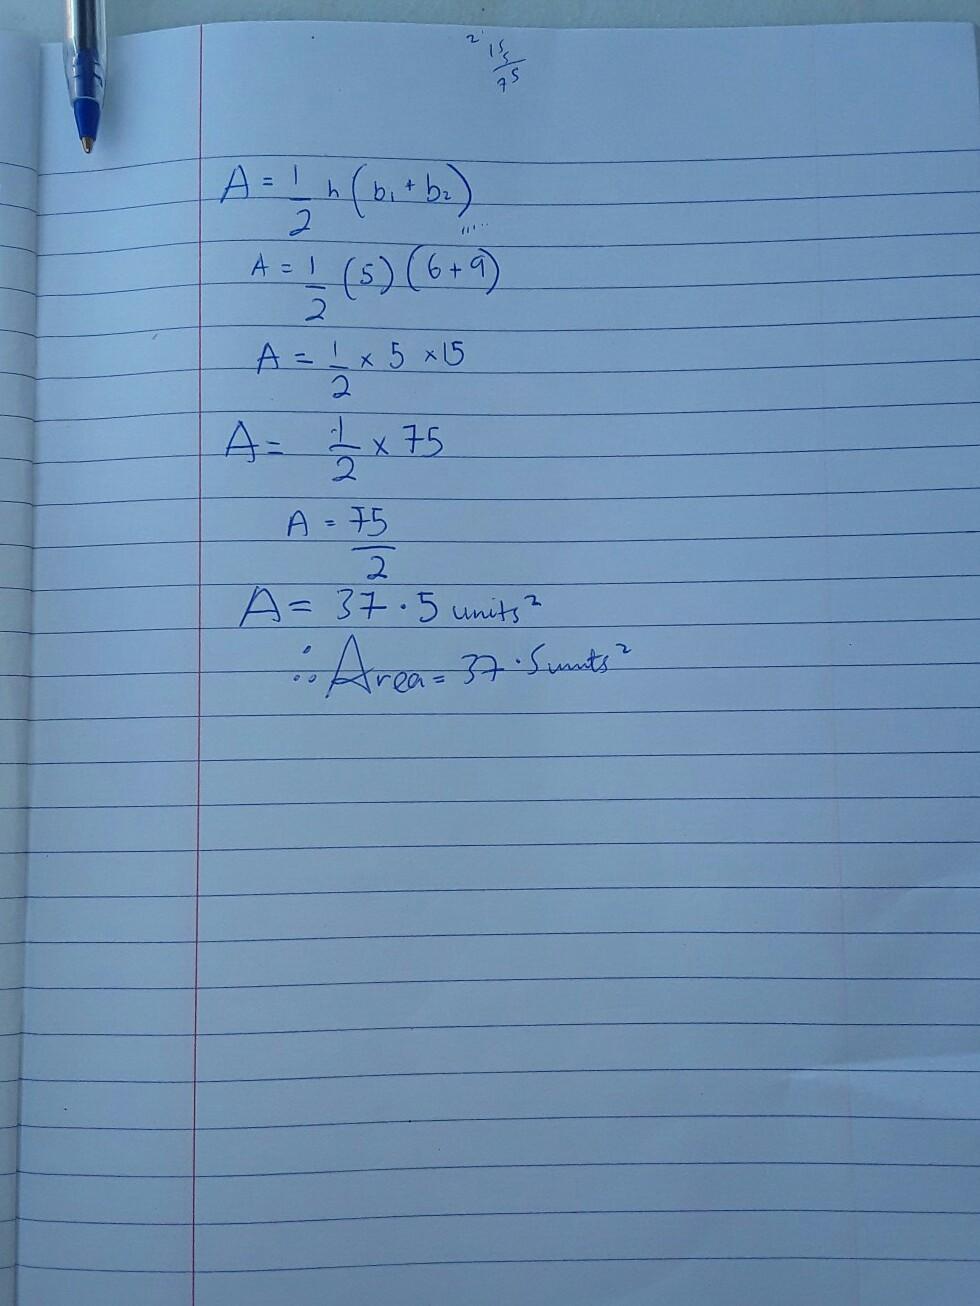 2 15
5
75
A = 1/2 h (b₁ + b₂)
A = 1/2 (5) (6+9)
A = 1/2 × 5 × 15
A = 1/2 × 75
A = 75/2
A = 37.5 units²
∴ Area = 37.5 units²